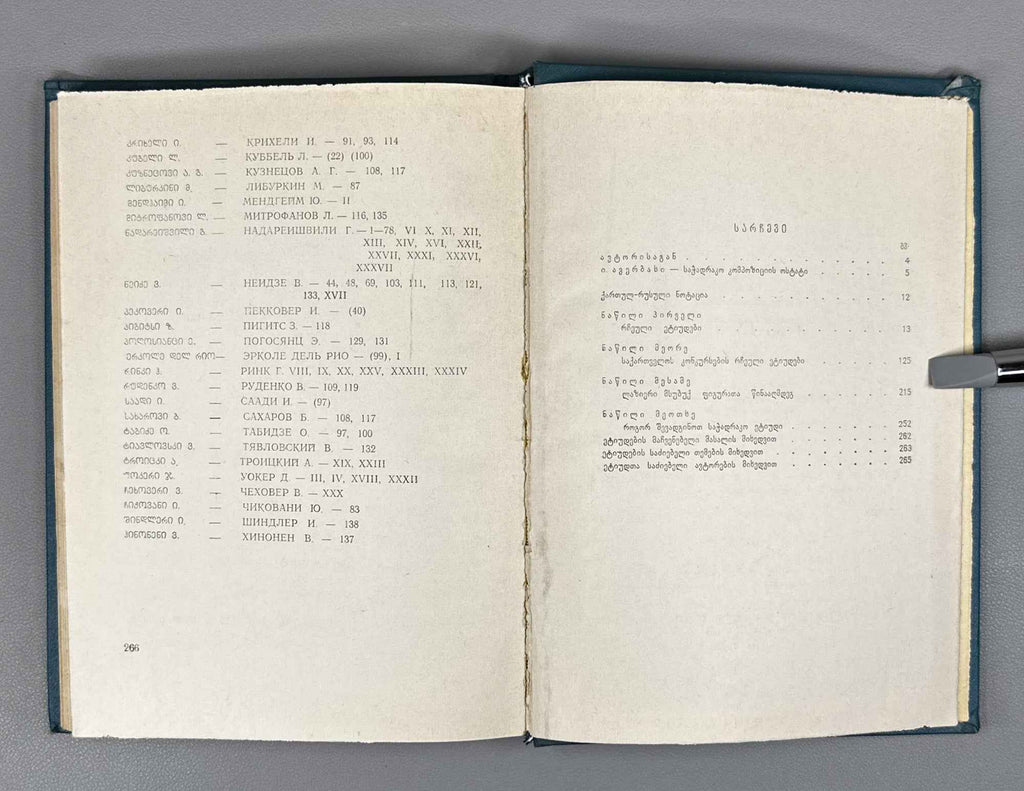 კრიხელი ი. — КРИХЕЛИ И. — 91, 93, 114
კუბელი ლ. — КУББЕЛЬ Л. — (22) (100)
კუზნეცოვი ა. გ. — КУЗНЕЦОВ А. Г. — 108, 117
ლიბურკინი მ. — ЛИБУРКИН М. — 87
მენდჰაიმი ი. — МЕНДГЕЙМ Ю. — II
მიტროფანოვი ლ. — МИТРОФАНОВ Л. — 116, 135
ნადარეიშვილი გ. — НАДАРЕИШВИЛИ Г. — 1—78, VI X, XI, XII,
XIII, XIV, XVI, XXII,
XXVII, XXXI, XXXVI,
XXXVII
ნეიძე ვ. — НЕИДЗЕ В. — 44, 48, 69, 103, 111, 113, 121,
133, XVII
პეკოვერი ი. — ПЕККОВЕР И. — (40)
პიგიტსი ზ. — ПИГИТС З. — 118
პოღოსიანცი ე. — ПОГОСЯНЦ Э. — 129, 131
ერკოლე დელ რიო— ЭРКОЛЕ ДЕЛЬ РИО — (99), I
რინკი ჰ. — РИНК Г. VIII, IX, XX, XXV, XXXIII, XXXIV
რუდენკო ვ. — РУДЕНКО В. — 109, 119
საადი ი. — СААДИ И. — (97)
სახაროვი ბ. — САХАРОВ Б. — 108, 117
ტაბიძე ო. — ТАБИДЗЕ О. — 97, 100
ტიავლოვსკი ვ. — ТЯВЛОВСКИЙ В. — 132
ტროიცკი ა. — ТРОИЦКИЙ А. — XIX, XXIII
უოკერი ჯ. — УОКЕР Д. — III, IV, XVIII, XXXII
ჩეხოვერი ვ. — ЧЕХОВЕР В. — XXX
ჩიქოვანი ი. — ЧИКОВАНИ Ю. — 83
შინდლერი ი. — ШИНДЛЕР И. — 138
ჰინონენი ვ. — ХИНОНЕН В. — 137
266
სარჩევი
გვ.
ავტორისაგან . . . . . . . . . . . . 4
ი. ავერბახი — საჭადრაკო კომპოზიციის ოსტატი . . . . . . 5
ქართულ-რუსული ნოტაცია . . . . . . . . . . 12
ნაწილი პირველი
რჩეული ეტიუდები . . . . . . . . . . . 13
ნაწილი მეორე
საქართველოს კონკურსების რჩეული ეტიუდები . . . . . . 125
ნაწილი მესამე
ლაზიერი მსუბუქ ფიგურათა წინააღმდეგ . . . . . . 215
ნაწილი მეოთხე
როგორ შევადგინოთ საჭადრაკო ეტიუდი . . . . . . . 252
ეტიუდების მაჩვენებელი მასალის მიხედვით . . . . . . . 262
ეტიუდების საძიებელი თემების მიხედვით . . . . . . . . 263
ეტიუდთა საძიებელი ავტორების მიხედვით . . . . . . . 265